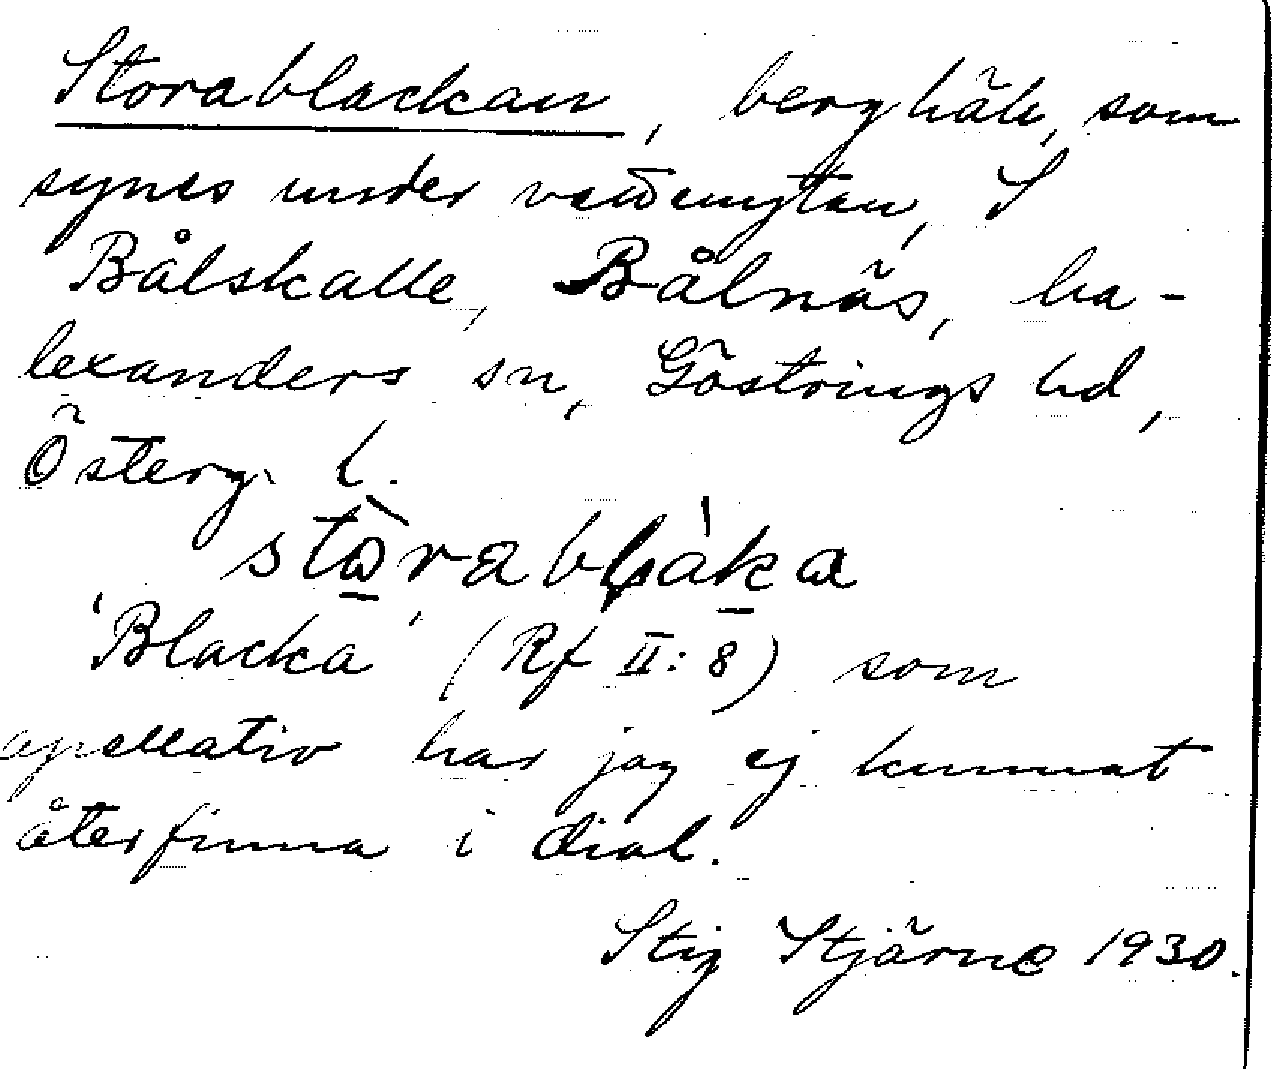 Storablackan, berghäll, som
synes under vattenytan, S
Bålskalle, Bålnäs, Ha-
lexanders sn, Göstrings hd,
Österg. l.
stòrabḷàka
'Blacka' (Rf II: 8) som
apellativ har jag ej kunnat
återfinna i dial.
Stig Stjärne 1930.